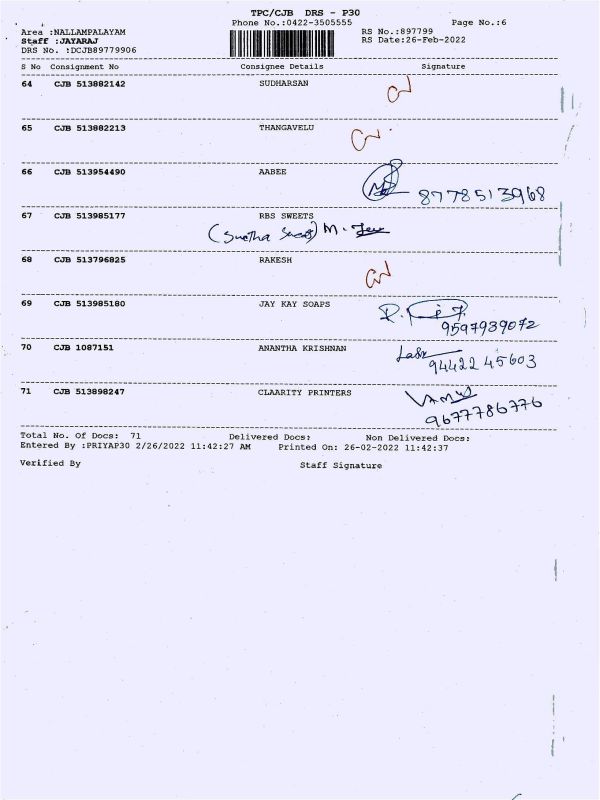 TPC/CJB DRS - P30
Phone No.:0422-3505555 Page No.:6
Area :NALLAMPALAYAM RS No.:897799
Staff :JAYARAJ RS Date:26-Feb-2022
DRS No. :DCJB89779906
S No Consignment No Consignee Details Signature
64 CJB 513882142 SUDHARSAN
65 CJB 513882213 THANGAVELU
66 CJB 513954490 AABEE
8778513968
67 CJB 513985177 RBS SWEETS
(Swetha Sweets) M.
68 CJB 513796825 RAKESH
69 CJB 513985180 JAY KAY SOAPS
9597939072
70 CJB 1087151 ANANTHA KRISHNAN
94422 45603
71 CJB 513898247 CLAARITY PRINTERS
9677786776
Total No. Of Docs: 71 Delivered Docs: Non Delivered Docs:
Entered By :PRIYAP30 2/26/2022 11:42:27 AM Printed On: 26-02-2022 11:42:37
Verified By Staff Signature